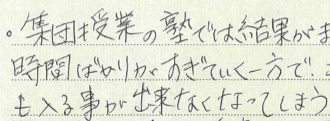 。集団授業の塾では結果がま
時間ばかりがすぎていく一方で、こ
も入る事が出来なくなってしまう